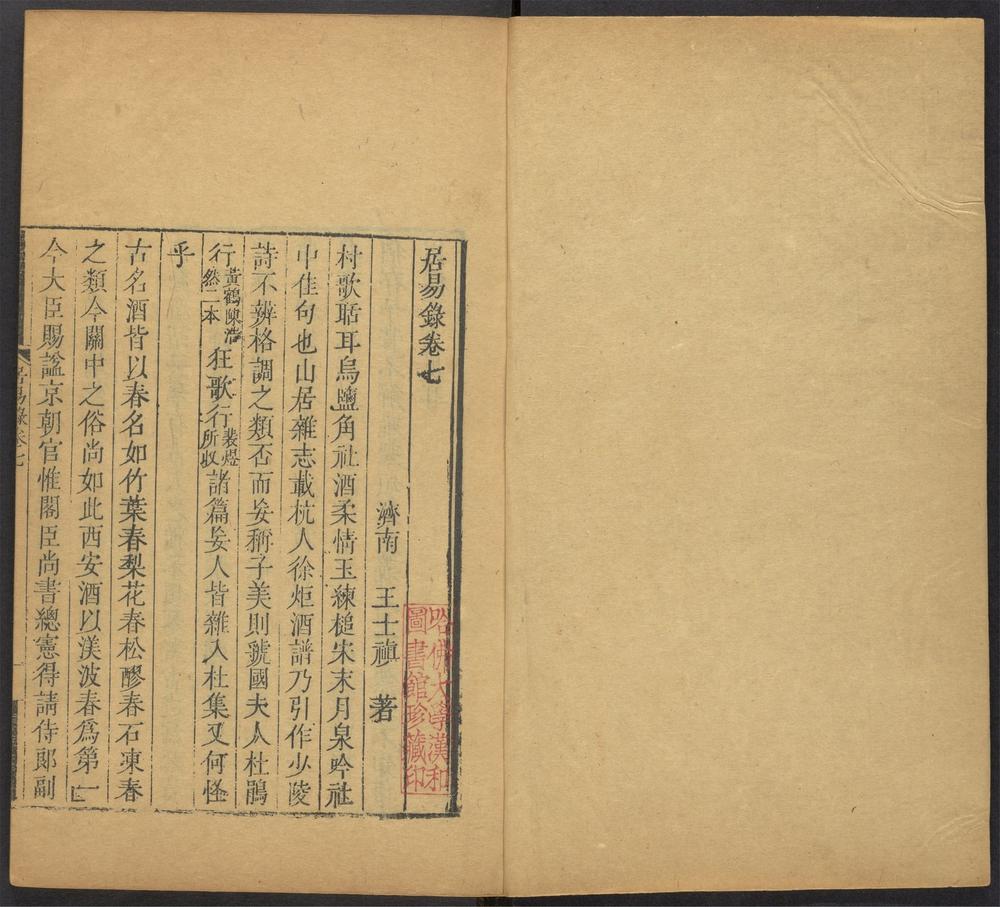 居易錄卷七
濟南 王士禛 著
村歌聒耳烏鹽角社酒柔情玉練槌宋末月泉吟社
中佳句也山居雜志載杭人徐炬酒譜乃引作少陵
詩不辨格調之類否而妄稱子美則虢國夫人杜鵑
行黃鶴陳浩然二本狂歌行裴煜所收諸篇妄人皆雜入杜集又何怪
乎
古名酒皆以春名如竹葉春梨花春松醪春石凍春
之類今關中之俗尚如此西安酒以渼波春爲第一
今大臣賜諡京朝官惟閣臣尚書總憲得請侍郎副
居易錄卷七
哈佛大學漢和
圖書館珍藏印